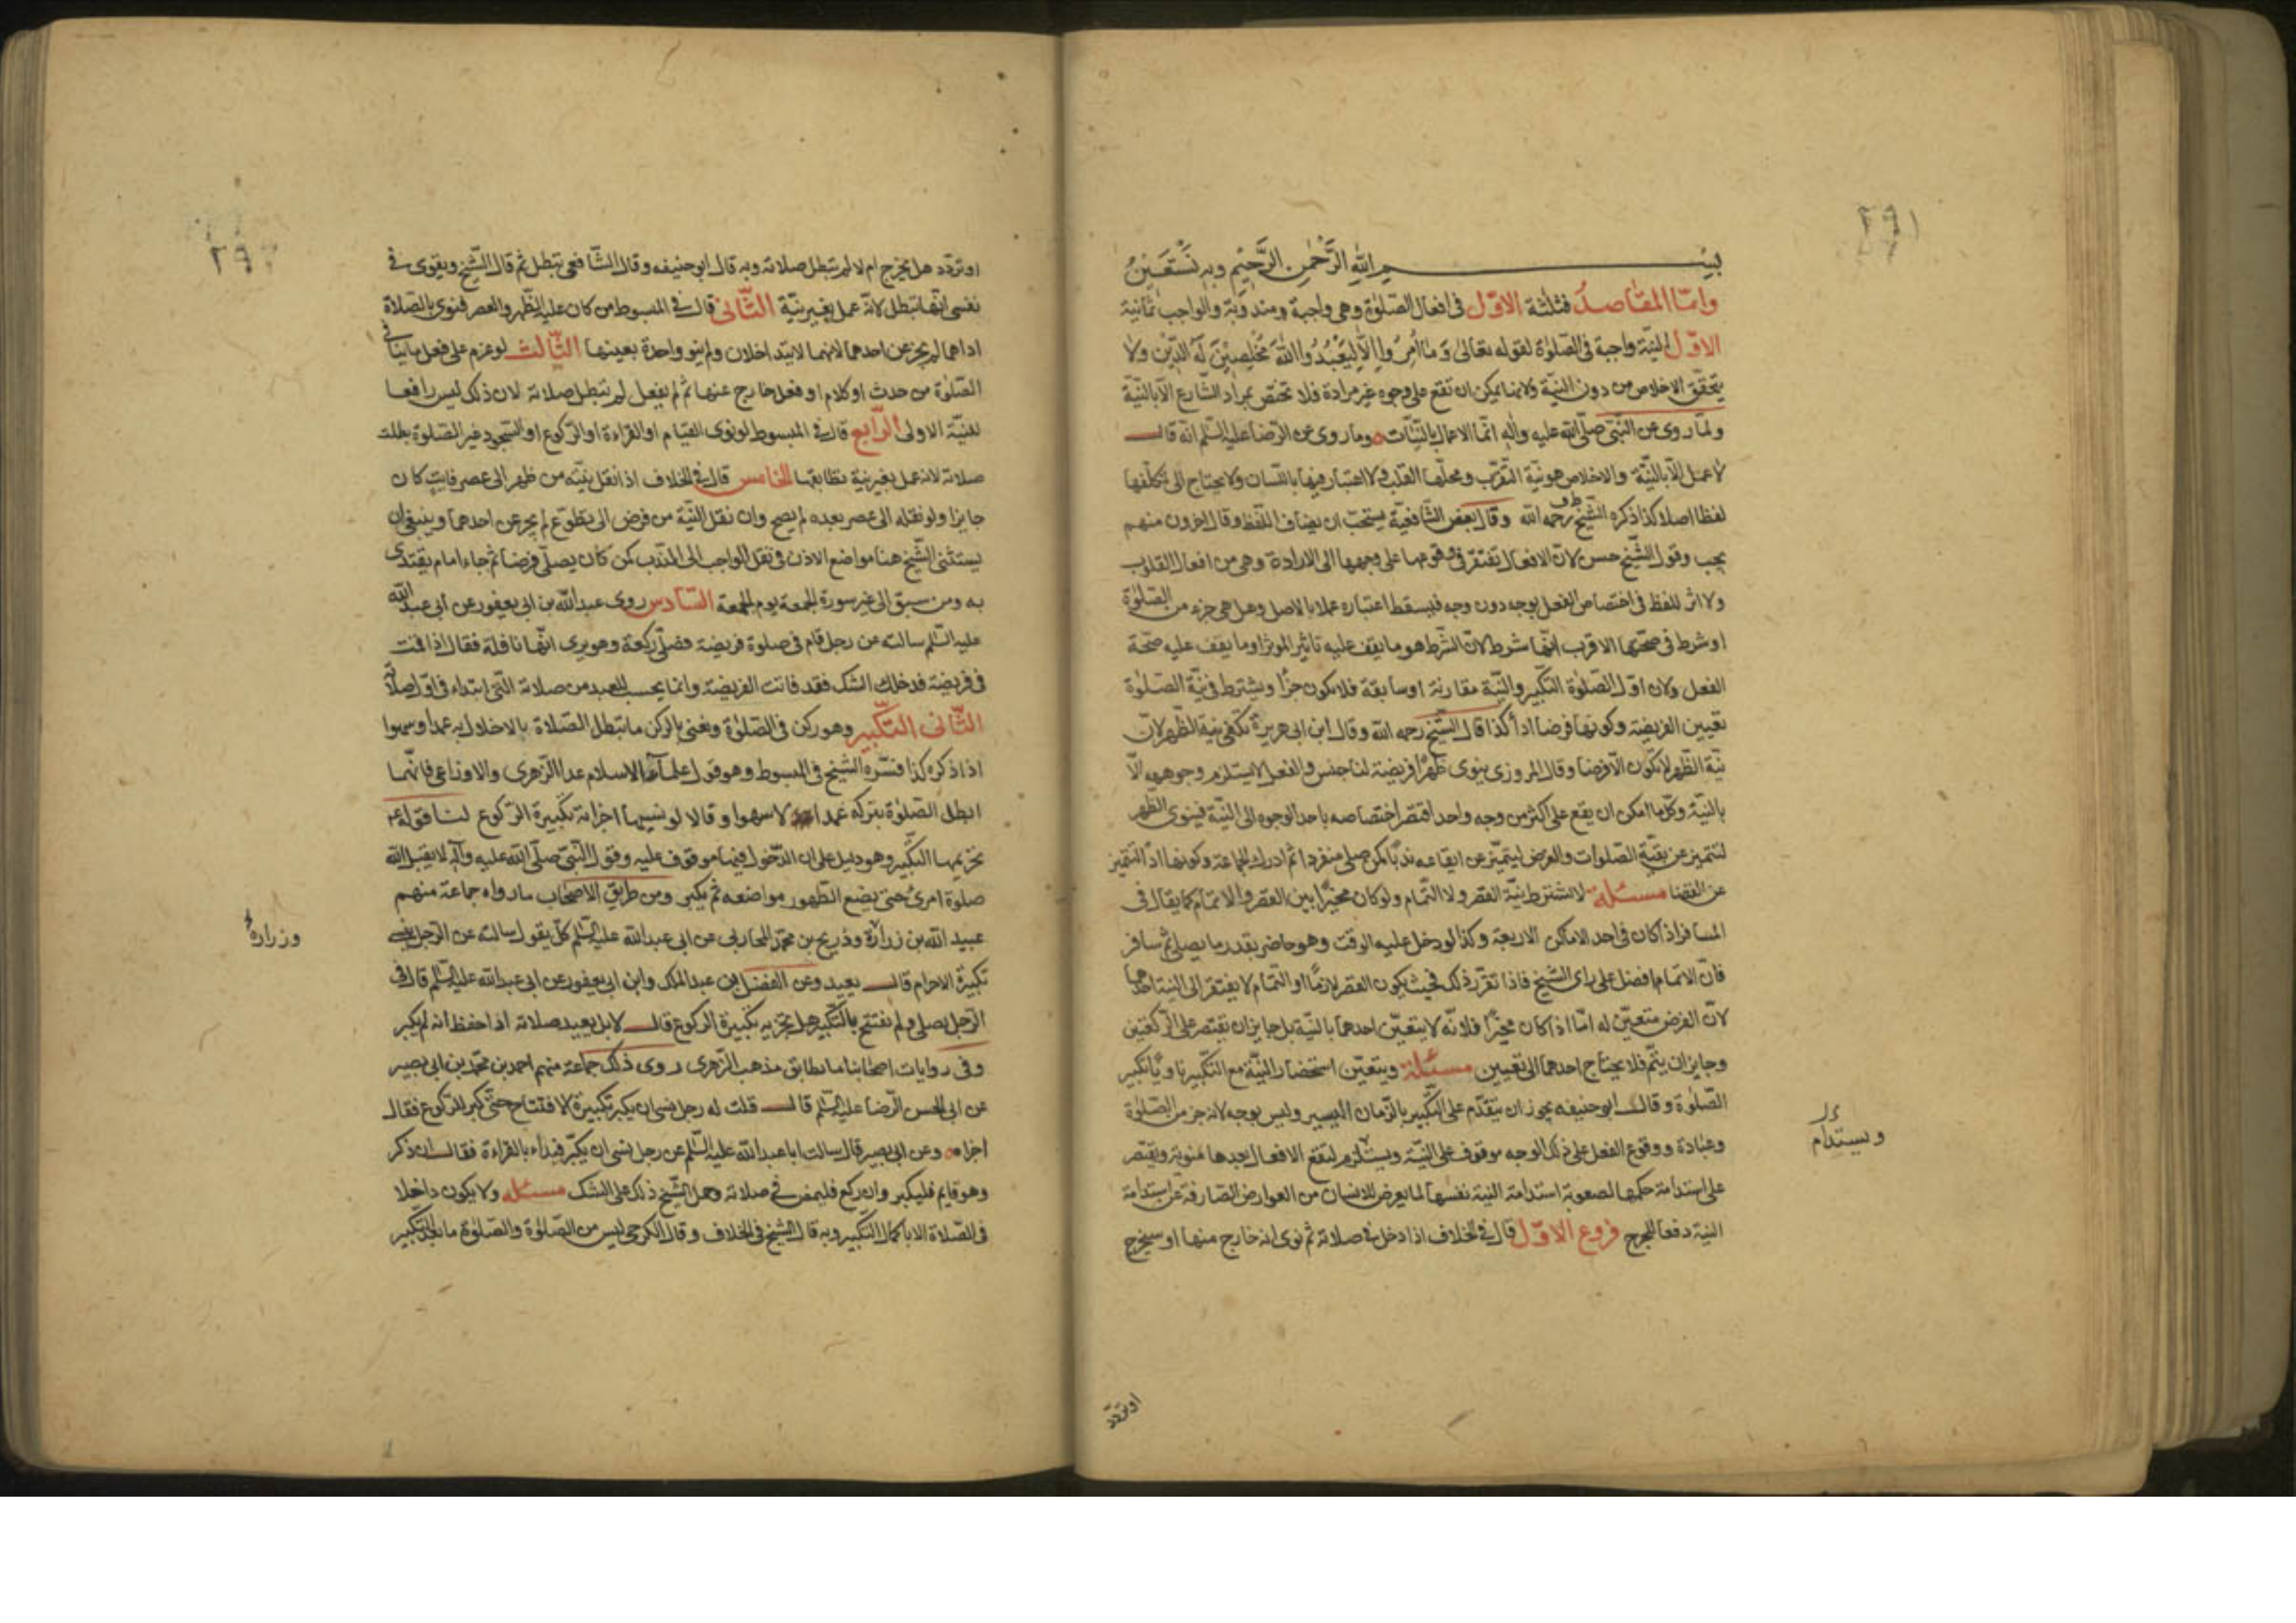 بسم الله الرحمن الرحيم وبه نستعين
وامّا المقاصد فثلثة الاوّل فى افعال الصّلوة وهى واجبة ومندوبة والواجب ثمانية
الاوّل النيّة واجبة فى الصّلوة لقوله تعالى وَمَا اُمِرُوا اِلّا لِيَعْبُدُوا اللهَ مُخْلِصِيْنَ لَهُ الدّيْنَ ولا
يتحقّق الاخلاص من دون النيّة ولانها يمكن ان تقع على وجوه غير مرادة فلا تختص بمراد الشّارع الّا بالنيّة
ولما روى عن النّبى صلّى الله عليه واله انّما الاعمال بالنيّات وما روى عن الرّضا عليه السّلم انّه قال
لا عمل الّا بالنيّة والاخلاص هو نيّة التّقرّب ومحلّها القلب ولا اعتبار فيها باللّسان ولا يحتاج الى تكلّفها
لفظا اصلا كذا ذكره الشّيخ رحمه الله وقال بعض الشّافعيّة يستحبّ ان يضاف اللّفظ وقال اخرون منهم
يجب وقول الشّيخ حسن لانّ الافعال تفتقر فى وقوعها على وجهها الى الارادة وهى من افعال القلوب
ولا اثر للفظ فى اختصاص الفعل بوجه دون وجه فيسقط اعتباره عملا بالاصل وهل هى جزء من الصّلوة
او شرط فى صحّتها الاقرب انّها شرط لانّ الشّرط هو ما يقف عليه تاثير المؤثر او ما يقف عليه صحّة
الفعل ولان اوّل الصّلوة التّكبير والنّية مقارنة او سابقة فلا يكون جزأ ويشترط فى نيّة الصّلوة
تعيين الفريضة وكونها فرضا اداً كذا قال الشّيخ رحمه الله وقال ابن ابى هريرة تكفى نية الظّهر لانّ
نيّة الظّهر لا تكون الّا فرضا وقال المروزى ينوى ظهرًا فريضة لنا جنس الفعل لا يستلزم وجوهه الّا
بالنيّة وكلّ ما امكن ان يقع على اكثر من وجه واحد افتقر اختصاصه باحد الوجوه الى النيّة فينوى الظهر
لتتميز عن بقيّة الصّلوات والفرض ليتميّز عن ايقاعه ندبًا كمن صلى منفردا ثم ادرك الجماعة وكونها اداً لتتميّز
عن القضا مسئلة لا تشترط نيّة القصر ولا التّمام ولو كان مخيّرًا بين القصر والاتمام كما يقال فى
المسافر اذا كان فى احد الاماكن الاربعة وكذا لو دخل عليه الوقت وهو حاضر بقدر ما يصلى ثم سافر
فانّ الاتمام افضل على راى الشيخ فاذا تقرّر ذلك فحيث يكون القصر لازمًا او التّمام لا يفتقر الى النيّة احدهما
لانّ الفرض متعيّن له امّا اذا كان مخيّرًا فلانّه لا يتعيّن احدهما بالنيّة بل جايز ان يقتصر على الرّكعتين
وجايز ان يتمّ فلا يحتاج احدهما الى تعيين مسئلة ويتعيّن استحضار النيّة مع التّكبير ناويًا تكبير
الصّلوة وقال ابو حنيفه يجوز ان يتقدّم على التّكبير بالزّمان اليسير وليس بوجه لانه جزء من الصّلوة
وعبادة ووقوع الفعل على ذلك الوجه موقوف على النيّة ويستلزم لتقع الافعال بعدها منويّة ويقتصر
على استدامة حكمها لصعوبة استدامة النية نفسها لما يعرض للانسان من العوارض الصّارفة عن استدامة
النية دفعا للحرج فروع الاوّل قال فى الخلاف اذا دخل فى صلاته ثم نوى انه خارج منها او سيخرج
ويستدام
او تردد
او تردّد هل يخرج ام لا لم تبطل صلاته وبه قال ابو حنيفه وقال الشّافعى تبطل ثم قال الشّيخ ويقوى فى
نفسى انّها تبطل لانّه عمل بغير نيّة الثّانى قال فى المبسوط من كان عليه الظّهر والعصر فنوى بالصّلاة
اداهما لم يجز عن احدهما لانهما لا يتداخلان ولم ينو واحدة بعينها الثّالث لو عزم على فعل ما ينافى
الصّلوة من حدث او كلام او فعل خارج عنها ثم لم يفعل لم تبطل صلاته لان ذلك ليس رافعا
للنيّة الاولى الرّابع قال فى المبسوط لو نوى القيام او القراءة او الرّكوع او السّجود غير الصّلوة بطلت
صلاته لانه عمل بغير نية تطابقها الخامس قال فى الخلاف اذا نقل نيّته من ظهر الى عصر فايت كان
جايزا ولو نقله الى عصر بعده لم يصح وان نقل النيّة من فرض الى تطوّع لم يجز عن احدهما وينبغى ان
يستثنى الشّيخ هنا مواضع الاذن فى نقل الواجب الى النّدب كمن كان يصلّى فرضا ثم جاء امام يقتدى
به ومن سبق الى غير سورة الجمعة يوم الجمعة السّادس روى عبد الله بن ابى يعفور عن ابى عبد الله
عليه السّلم سالته عن رجل قام فى صلوة فريضة فصلّى ركعة وهو يرى انّها نافلة فقال اذا قمت
فى فريضة فدخلك الشك فقد فانت الفريضة وانما يحسب للعبد من صلاته الّتى ابتداء فى اوّل صلاته
الثّانى التّكبير وهو ركن فى الصّلوة ونعنى بالركن ما تبطل الصّلاة بالاخلال به عمدا وسهوا
اذا ذكره كذا فسّره الشّيخ فى المبسوط وهو قول علمآء الاسلام عدا الزّهرى والاوزاعى فانّهما
ابطلا الصّلوة بتركه عمدا لا سهوا وقالا لو نسيها اجزأته تكبيرة الرّكوع لنا قوله ع م
تحريمها التكبير وهو دليل على ان الدّخول فيها موقوف عليه وقول النّبىّ صلّى الله عليه وآله لا يقبل الله
صلوة امرئ حتى يضع الطّهور مواضعه ثم يكبر ومن طريق الاصحاب ما رواه جماعة منهم
عبيد الله بن زرارة وذريح بن محمّد المحاربى عن ابى عبد الله عليه السّلم كلّ يقول سالته عن الرّجل ينسى
تكبيرة الاحرام قال يعيد وعن الفضل بن عبد الملك وابن ابى يعفور عن ابى عبد الله عليه السّلم قال فى
الرّجل يصلى ولم يفتتح بالتّكبير هل تجزيه تكبيرة الركوع قال لا بل يعيد صلاته اذا حفظ انه لم يكبر
وفى روايات اصحابنا ما يطابق مذهب الزّهرى روى ذلك جماعة منهم احمد بن محمّد بن ابى بصير
عن ابى الحسن الرّضا عليه السّلم قال قلت له رجل نسى ان يكبر تكبيرة الافتتاح حتّى كبر للرّكوع فقال
اجزاه وعن ابى بصير قال سالت ابا عبد الله عليه السّلم عن رجل نسى ان يكبّر فبدأ بالقراءة فقال ان ذكر
وهو قايم فليكبر وان ركع فليمض فى صلاته وحمل الشّيخ ذلك على الشك مسئلة ولا يكون داخلا
فى الصّلاة الا باكمال التكبير وبه قال الشّيخ فى الخلاف وقال الكرخى ليس من الصّلوة والصّلوة ما بعد التكبير
وزرارة